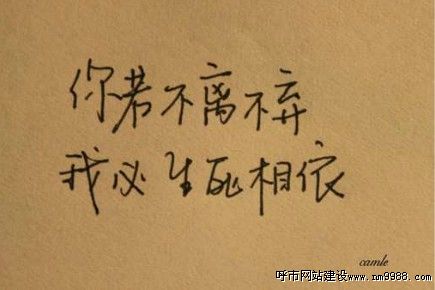 你若不离不弃
我必生死相依
camle
呼市网站建设www.nm9988.com